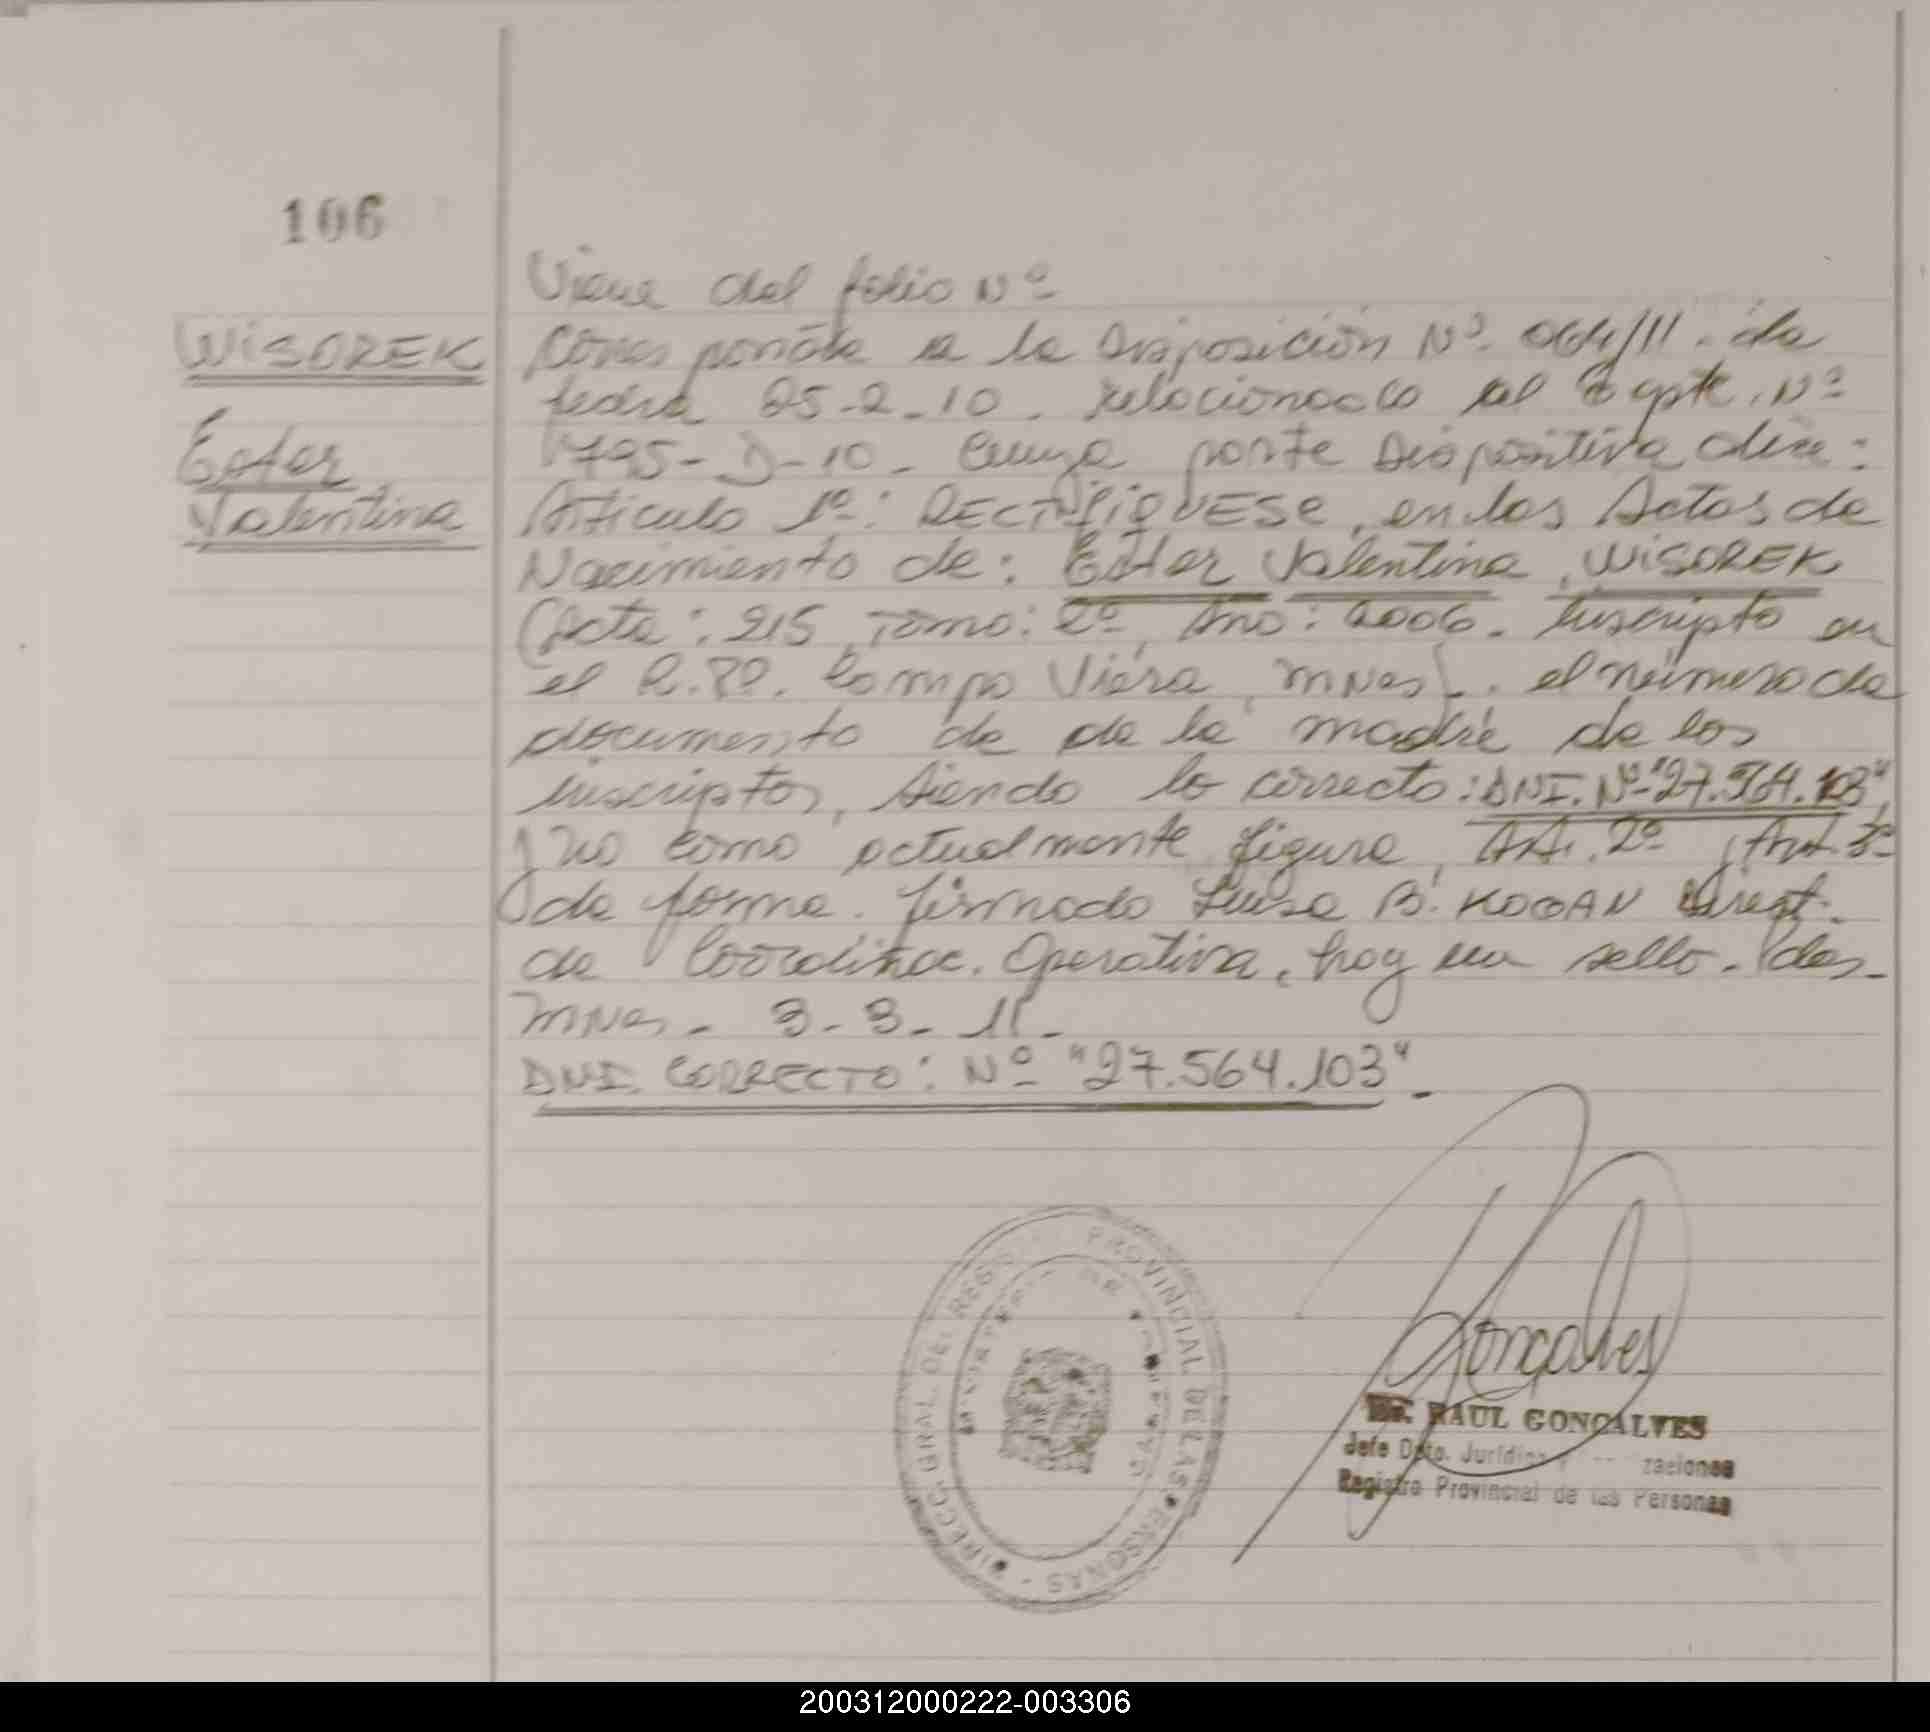 106
Viene del folio Nº
WISOREK
Ester
Valentina
Corresponde a la Disposición Nº 064/11. de
fecha 25-2-10. relacionado al Expte. Nº
1795-D-10. Cuya parte Dispositiva dice:
Articulo 1º: RECTIFIQUESE, en las Actas de
Nacimiento de: Ester Valentina, WISOREK
(Acta: 215, Tomo: 2º, Año: 2006. Inscripto en
el R.PP. Campo Viera, Mnes). el número de
documento de de la madre de los
inscriptos, siendo lo correcto: DNI. Nº "27.564.103",
y no como actualmente figura, Art. 2º y Art. 3º
de forma. firmado Luisa B. KOGAN Direct.
de Coordinac. Operativa, hay un sello. Pdas-
Mnes- 3-3-11-
DNI. CORRECTO: Nº "27.564.103".
DIRECC. GRAL. DEL REGISTRO PROVINCIAL DE LAS PERSONAS -
Gonçalves
Dr. RAUL GONCALVES
Jefe Dpto. Jurídico y
Registro Provincial de las Personas
200312000222-003306